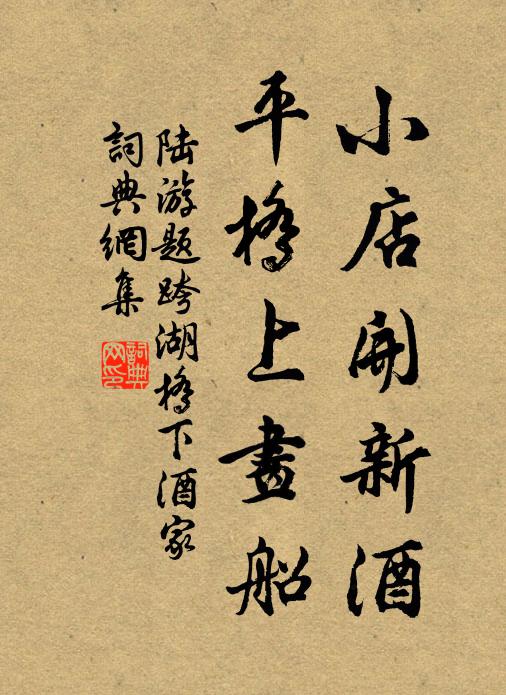 小店開新酒
平橋上畫船
陸游題跨湖橋下酒家
詞典網集
詞典
网印